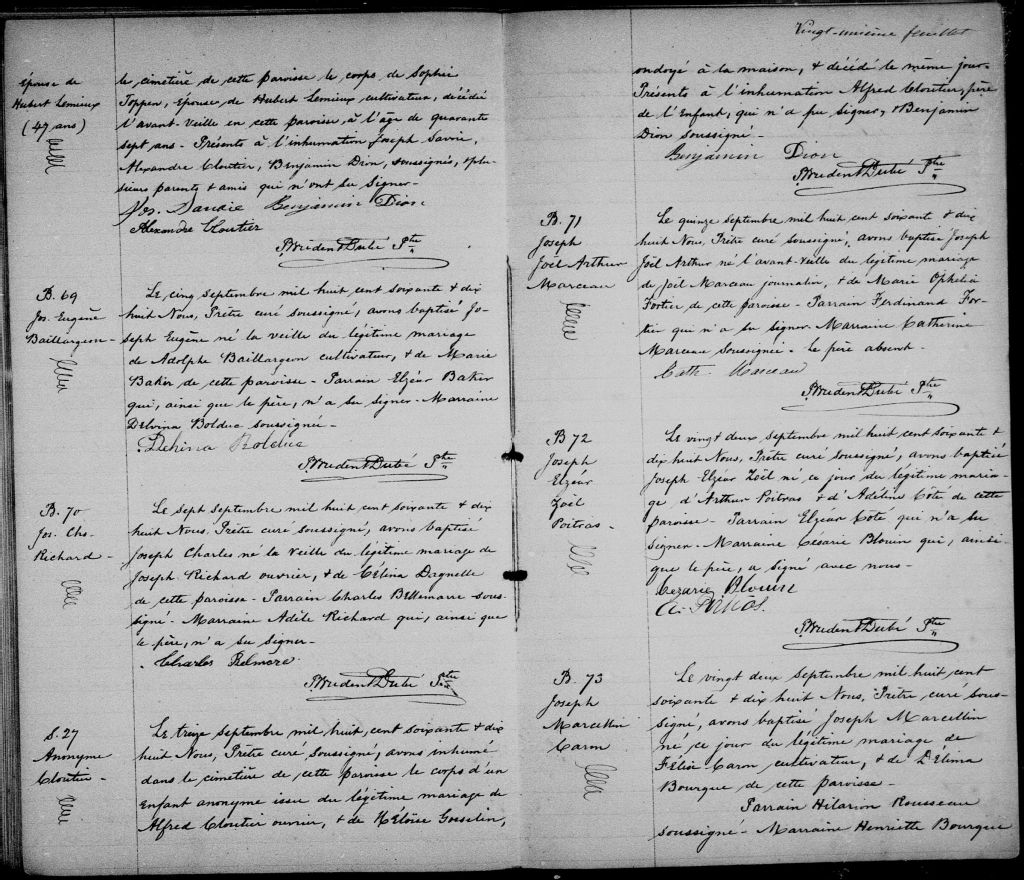 Épouse de
Hubert Lemieux
(47 ans)
le cimetière de cette paroisse le corps de Sophie
Toppen, Épouse de Hubert Lemieux cultivateur, décédée
l'avant-veille en cette paroisse, à l'âge de quarante
sept ans - Présents à l'inhumation Joseph Savoie,
Alexandre Cloutier, Benjamin Dion, soussignés, & plu-
sieurs parents & amis qui n'ont su signer-
Jos. Savoie Benjamin Dion
Alexandre Cloutier
Prudent Dubé Ptre
B. 69
Jos. Eugène
Baillargeon-
Le cinq Septembre mil huit cent soixante & dix
huit Nous, Prêtre curé soussigné, avons baptisé Jo-
seph Eugène né la veille du légitime mariage
de Adolphe Baillargeon cultivateur, & de Marie
Baker de cette paroisse - Parrain Elzéar Baker
qui, ainsi que le père, n'a su signer - Marraine
Delvina Bolduc soussignée-
Delvina Bolduc
Prudent Dubé Ptre
B. 70
Jos. Chs.
Richard-
Le sept Septembre mil huit cent soixante & dix
huit Nous, Prêtre curé soussigné, avons baptisé
Joseph Charles né la veille du légitime mariage de
Joseph Richard ouvrier, & de Célina Dagnelle
de cette paroisse - Parrain Charles Bellemarre sous-
signé - Marraine Adèle Richard qui, ainsi que
le père, n'a su signer-
Charles Belmere
Prudent Dubé Ptre
S. 27
Anonyme
Cloutier-
Le treize Septembre mil huit, cent soixante & dix
huit Nous, Prêtre curé, soussigné, avons inhumé
dans le cimetière de cette paroisse le corps d'un
Enfant anonyme issu du légitime mariage de
Alfred Cloutier ouvrier, & de Héloïse Gosselin,
Vingt-unième feuillet
ondoyé à la maison, & décédé le même jour-
Présents à l'inhumation Alfred Cloutier, père
de l'Enfant, qui n'a pu signer, & Benjamin
Dion soussigné-
Benjamin Dion
Prudent Dubé Ptre
B. 71
Joseph
Joël Arthur
Marceau
Le quinze Septembre mil huit cent soixante & dix
huit Nous, Prêtre curé soussigné, avons baptisé Joseph
Joël Arthur né l'avant-veille du légitime mariage
de Joël Marceau journalier, & de Marie Ophelia
Fortier de cette paroisse - Parrain Ferdinand For-
tier qui n'a su signer - Marraine Catherine
Marceau soussignée - le père absent-
Cath. Marceau
Prudent Dubé Ptre
B 72
Joseph
Elzéar
Zoël
Poitras-
Le vingt deux Septembre mil huit cent soixante &
dix huit Nous, Prêtre curé soussigné, avons baptisé
Joseph Elzéar Zoël né ce jour du légitime maria-
ge d'Arthur Poitras & d'Adéline Côté de cette
paroisse - Parrain Elzéar Coté qui n'a su
signer - Marraine Cesarie Blouin qui, ainsi
que le père, a signé avec nous-
Cezarie Blouin
Prudent Dubé Ptre
B. 73
Joseph
Marcellin
Caron
Le vingt deux Septembre mil huit cent
soixante & dix huit Nous, Prêtre curé sous-
signé, avons baptisé Joseph Marcellin
né ce jour du légitime mariage de
Félix Caron cultivateur, & de Délima
Bourque de cette paroisse-
Parrain Hilarion Rousseau
soussigné - Marraine Henriette Bourque